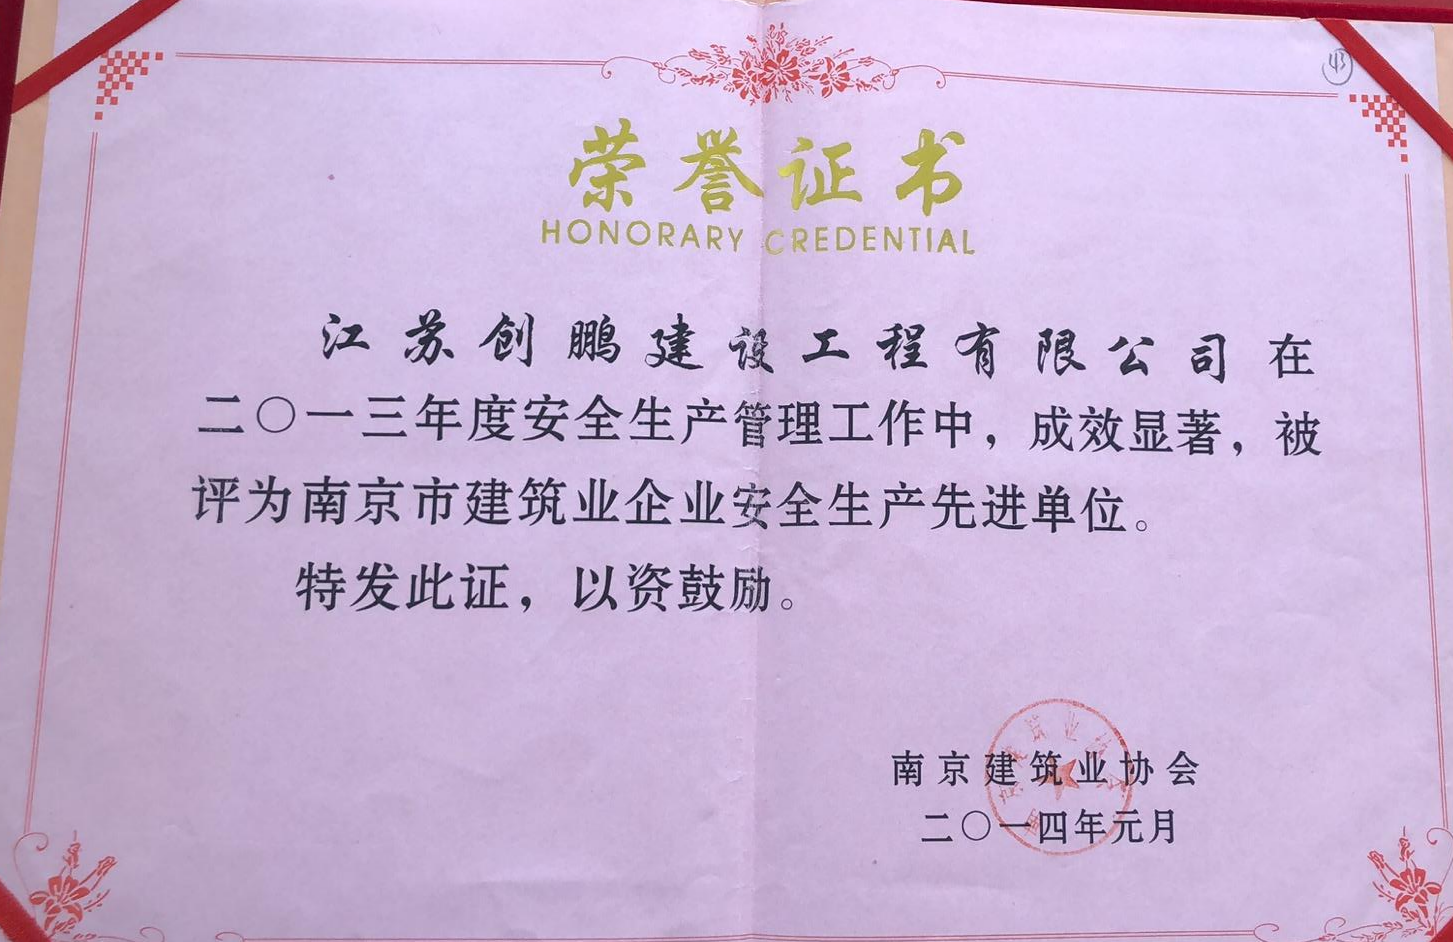 荣誉证书
HONORARY CREDENTIAL
江苏创鹏建设工程有限公司在
二〇一三年度安全生产管理工作中，成效显著，被
评为南京市建筑业企业安全生产先进单位。
特发此证，以资鼓励。
南京建筑业协会
二〇一四年元月